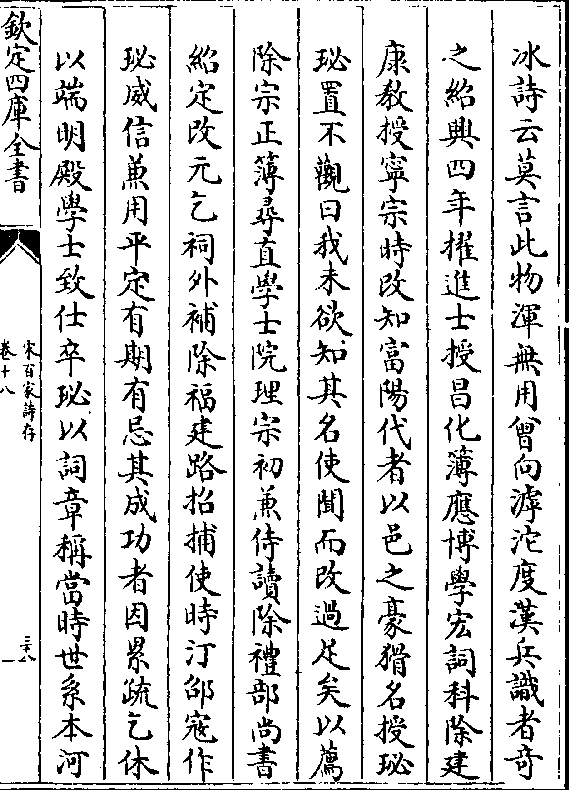 冰詩云莫言此物渾無用曾向滹沱度漢兵識者竒
之紹興四年擢進士授昌化簿應博學宏詞科除建
康教授寧宗時改知富陽代者以邑之豪猾名授㻫
㻫置不觀曰我未欲知其名使聞而改過足矣以薦
除宗正簿尋直學士院理宗初兼侍讀除禮部尚書
紹定改元乞祠外補除福建路招捕使時汀邵寇作
㻫威信兼用平定有期有忌其成功者因累疏乞休
以端明殿學士致仕卒㻫以詞章稱當時世系本河
欽定四庫全書
宋百家詩存
卷十八
三十八
一